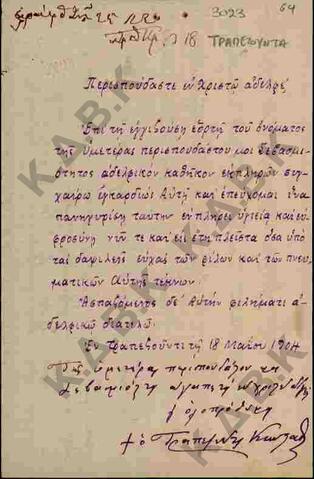 3023
64
18 ΤΡΑΠΕΖΟΥΝΤΑ
Περισπούδαστε ἐν Χριστῷ ἀδελφέ,
Ἐπὶ τῇ ἐγγιζούσῃ ἑορτῇ τοῦ ὀνόματος
τῆς Ὑμετέρας περισπουδάστου μοι Σεβασμι-
ότητος ἀδελφικὸν καθῆκον ἐκπληρῶν συγ-
χαίρω ἐγκαρδίως Αὐτῇ καὶ ἐπεύχομαι ἵνα
πανηγυρίσῃ ταύτην ἐν πλήρει ὑγιείᾳ καὶ εὐ-
φροσύνῃ νῦν τε καὶ εἰς ἔτη πλεῖστα ὅσα ὑπὸ
τὰς δαψιλεῖς εὐχὰς τῶν φίλων καὶ τῶν πνευ-
ματικῶν Αὐτῆς τέκνων.
Ἀσπαζόμενος δὲ Αὐτὴν φιλήματι ἀ-
δελφικῷ διατελῶ.
Ἐν Τραπεζοῦντι τῇ 18 Μαΐου 1904
Τῆς ὑμετέρας περισπουδάστου
Σεβασμιότητος ἀγαπητὸς ἐν Χριστῷ ἀδελφὸς
ὁλοπρόθυμος
† ὁ Τραπεζοῦντος
Κ.Α.Β.Κ
Κ.Α.Β.Κ
Κ.Α.Β.Κ